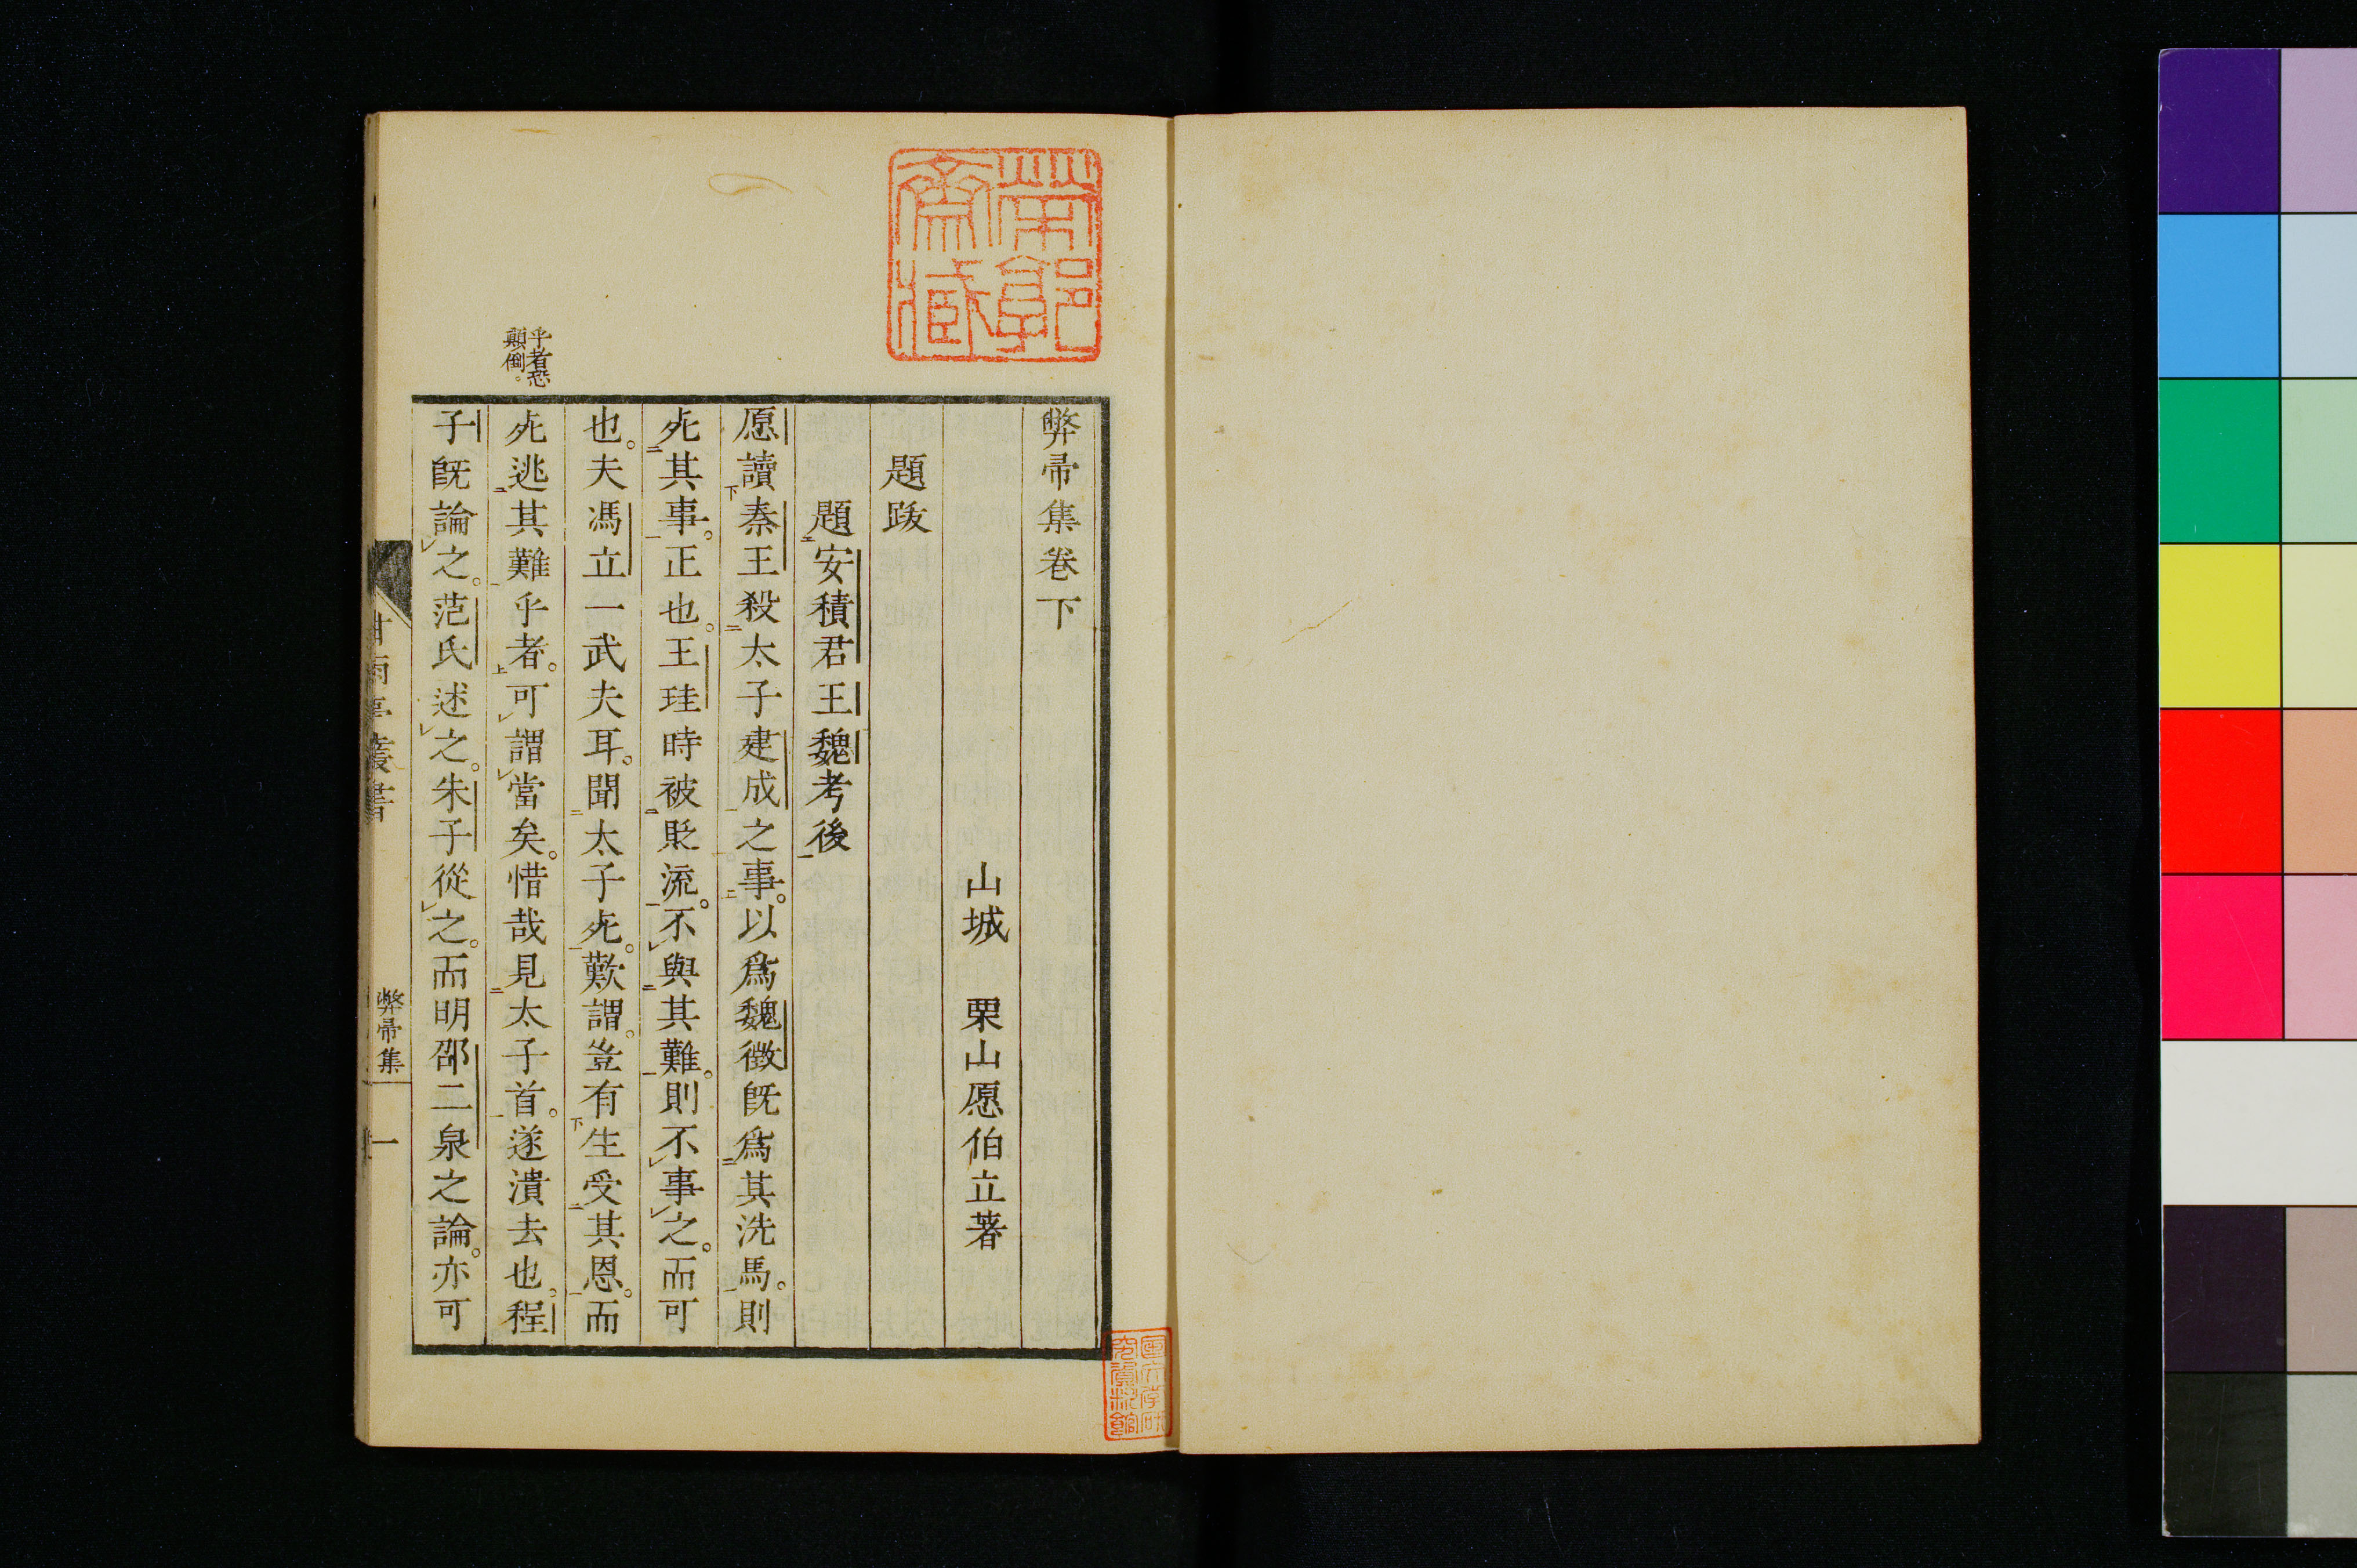 弊帚集卷下
山城 栗山愿伯立著
題跋
題安積君王魏考後
愿讀秦王殺太子建成之事。以爲魏徵既爲其洗馬。則
死其事。正也。王珪時被貶流。不與其難。則不事之。而可
也。夫馮立一武夫耳。聞太子死。歎謂。豈有生受其恩。而
死逃其難乎者。可謂當矣。惜哉見太子首。遂潰去也。程
子既論之。范氏述之。朱子從之。而明邵二泉之論。亦可
乎者恐
顛倒。
甘雨亭叢書
弊帚集
一